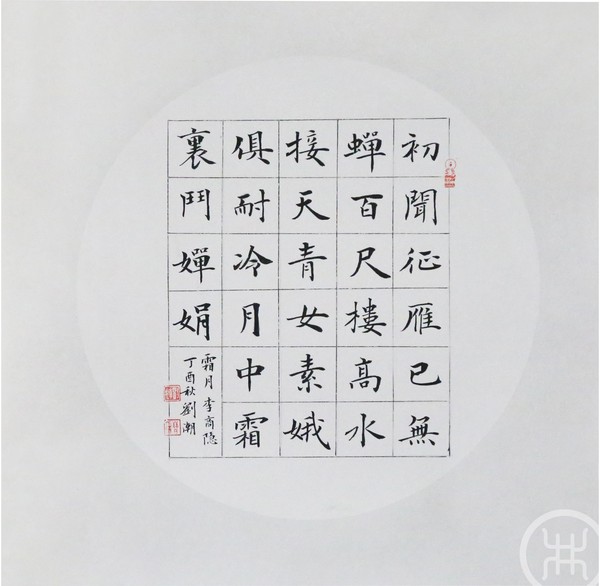 初聞征雁已無
蟬百尺樓高水
接天青女素娥
俱耐冷月中霜
裏鬥嬋娟
霜月 李商隐
丁酉秋劉潮